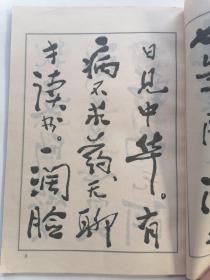 日见中华。有
病不求药，无聊
才读书。一阔脸